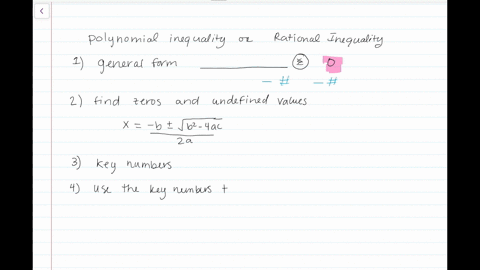 polynomial inequality or Rational Inequality
1) general form ________ ≥ 0
- # - #
2) find zeros and undefined values
x = -b ± √b²-4ac / 2a
3) key numbers
4) use the key numbers t